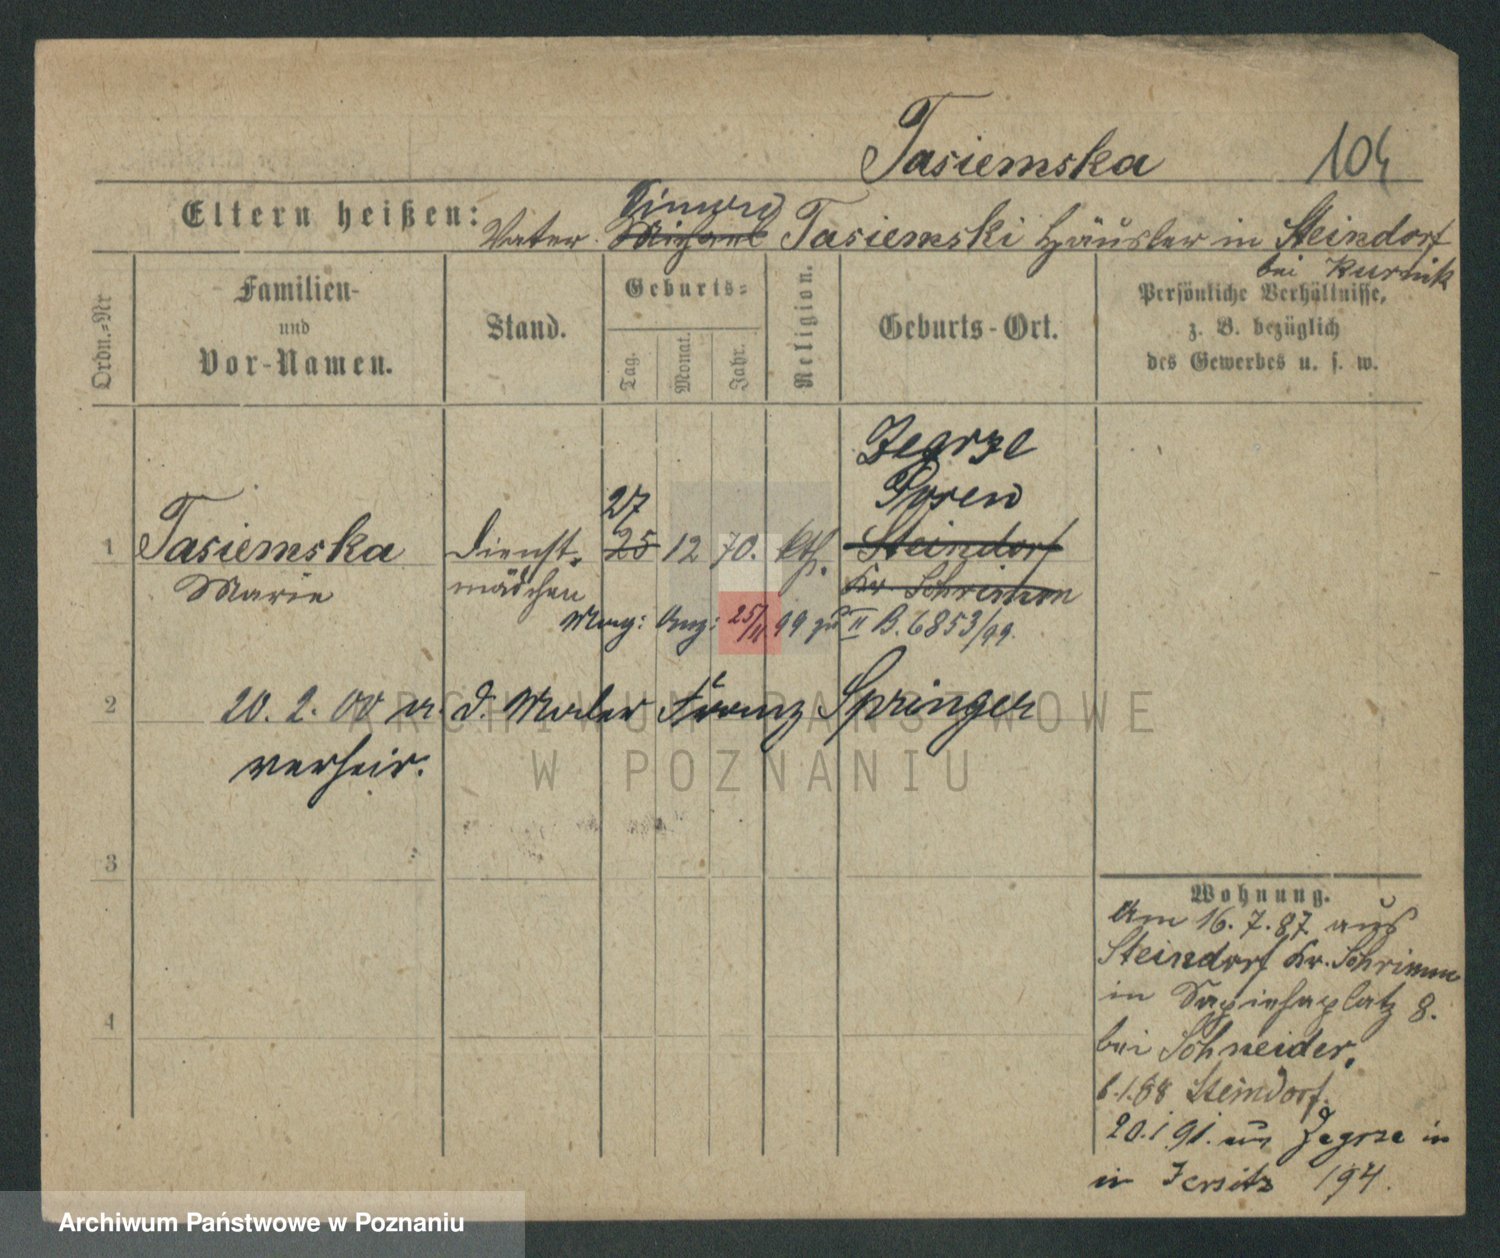 Tasiemska 104
Eltern heißen: Vater Simon Michael Tasiemski Häusler in Steindorf
bei Kurnik
Ordn.=Nr
Familien-
und
Vor-Namen.
Stand.
Geburts=
Tag.
Monat.
Jahr.
Religion.
Geburts-Ort.
Persönliche Verhältnisse,
z. B. bezüglich
des Gewerbes u. s. w.
Zegrze
Posen
27
1 Tasiemska Dienst- 25 12 70. kth. Steindorf
Marie mädchen Kr Schrimm
Mang: Anz: 25/11 99 zu II B. 6853/99.
2 20. 2. 00 m. d. Maler Franz Springer
verheir.
ARCHIWUM PAŃSTWOWE
W POZNANIU
3
4
Wohnung.
Am 16.7.87 aus
Steindorf Kr. Schrimm
in Sapiehaplatz 8.
bei Schneider.
6.1.88 Steindorf.
20.1.91. aus Zegrze in
in Jersitz 194.
Archiwum Państwowe w Poznaniu